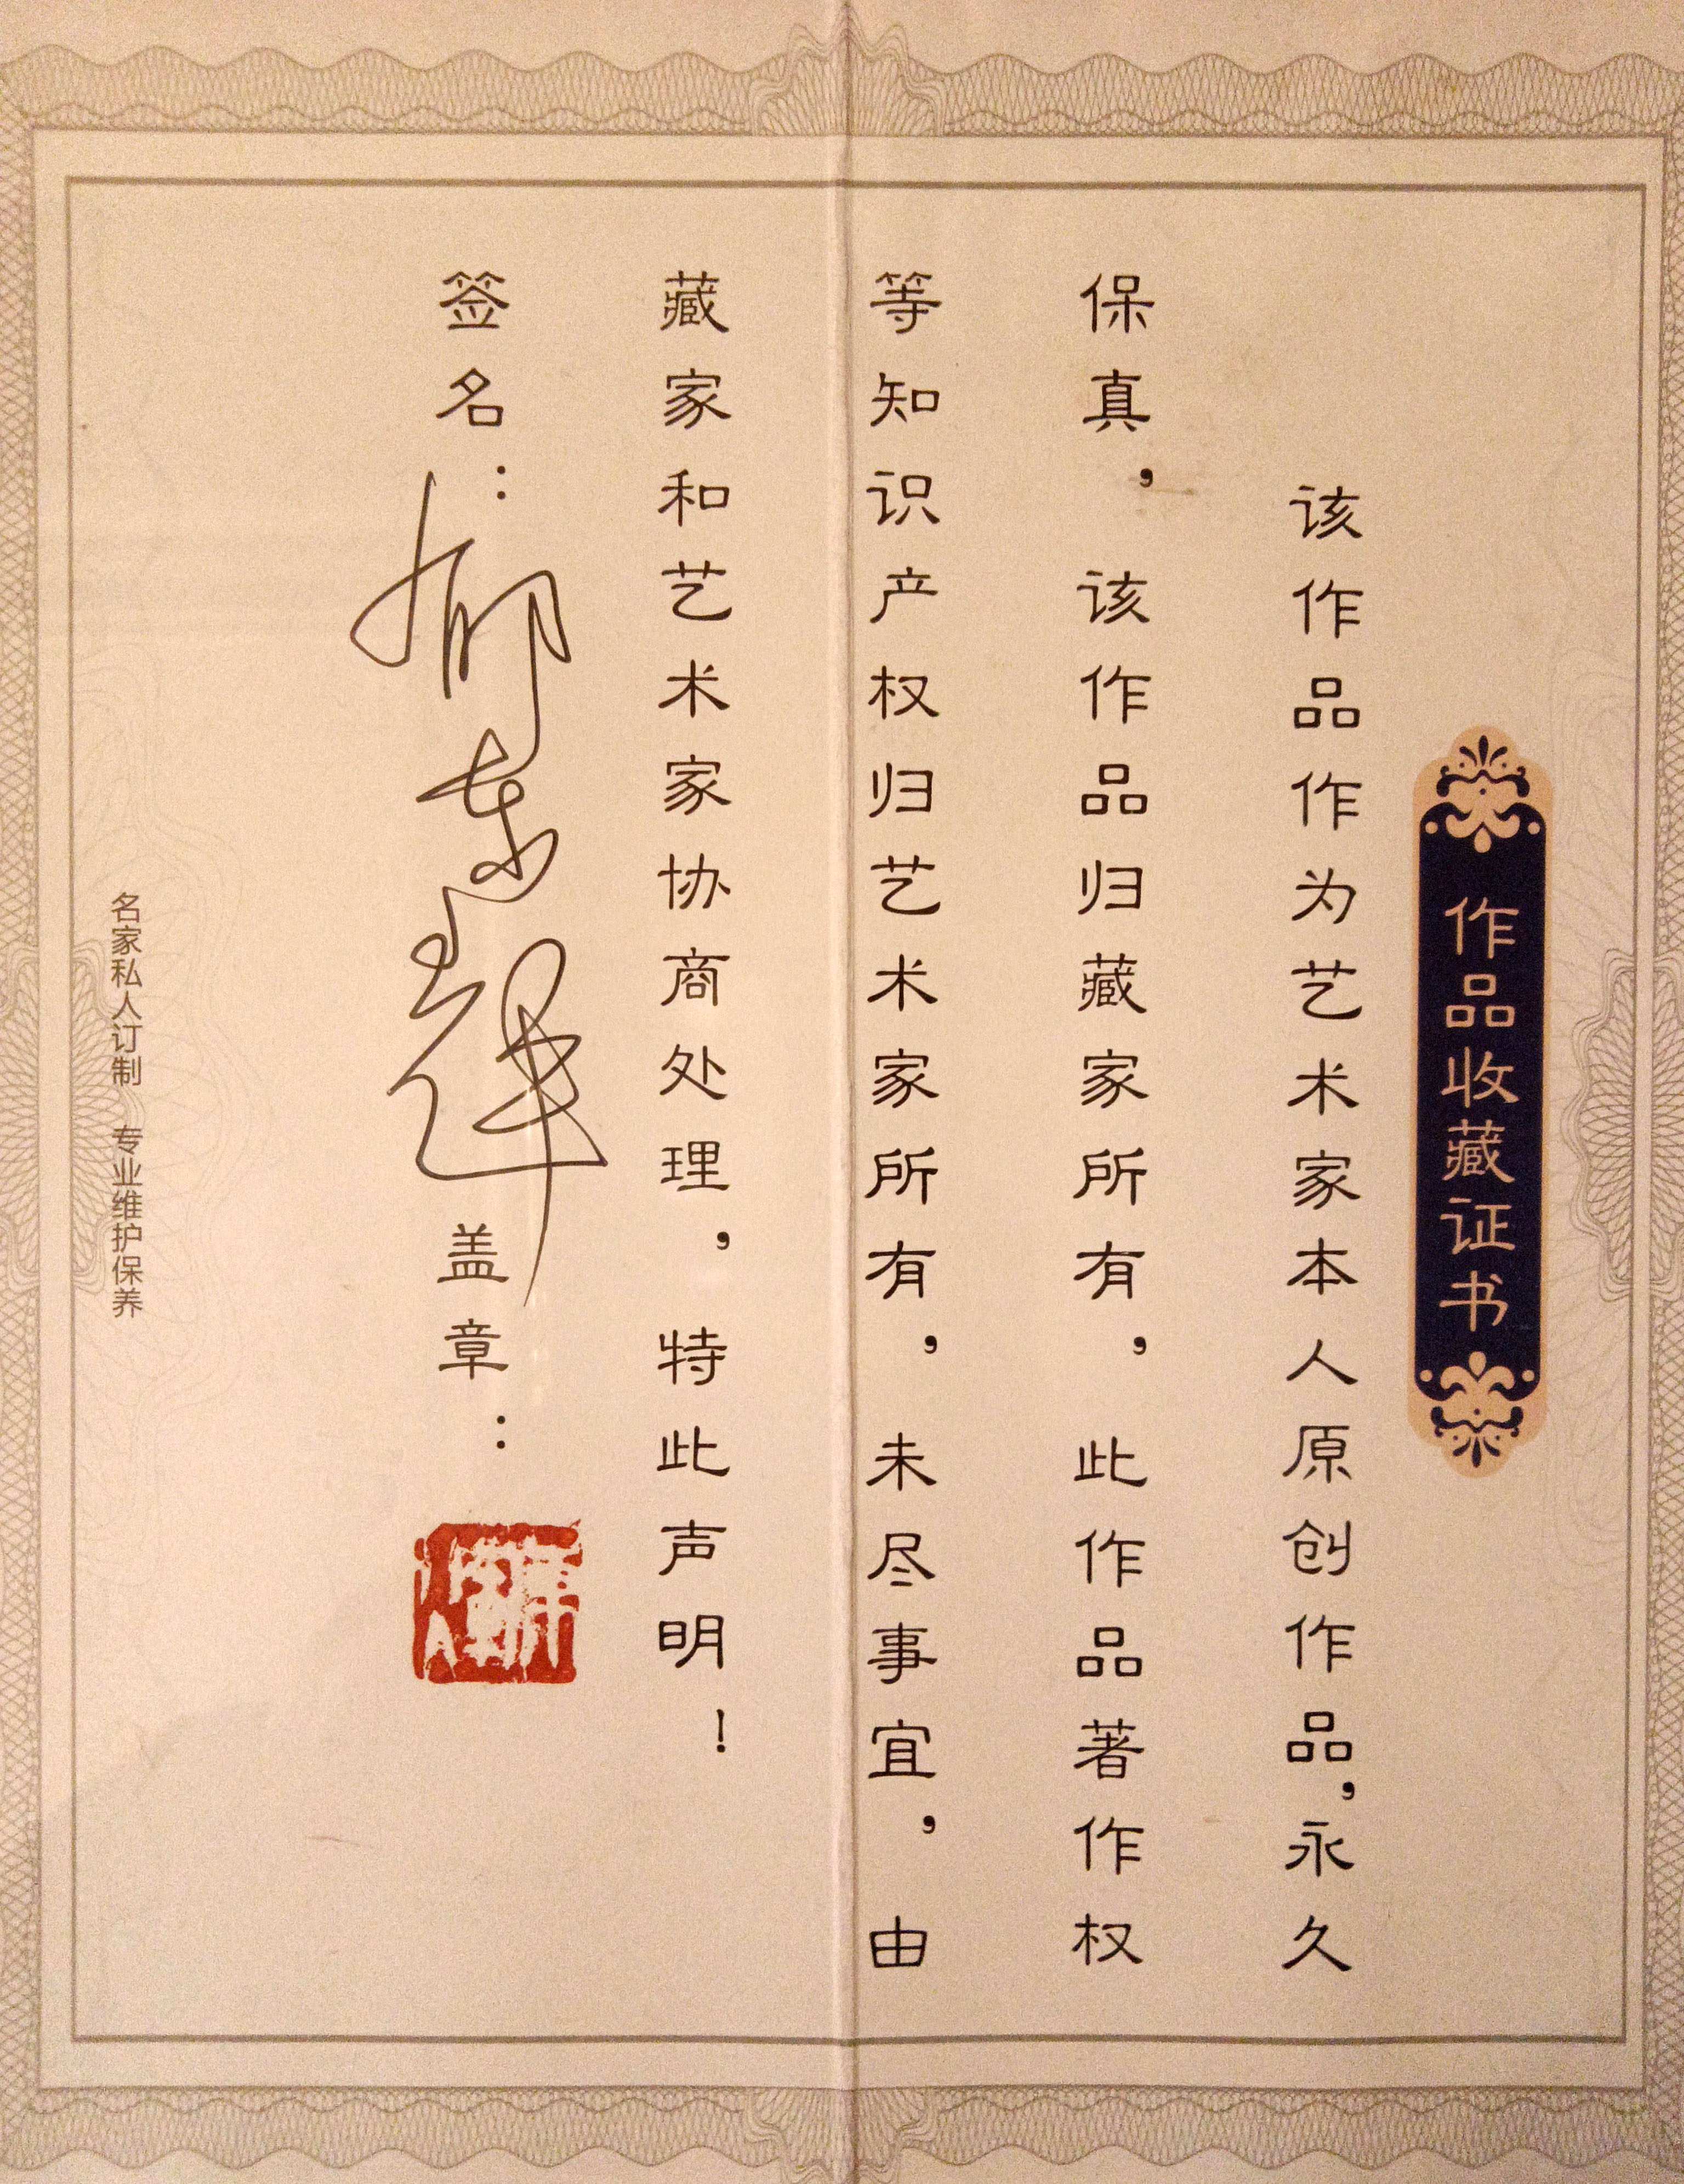 作品收藏证书
该作品作为艺术家本人原创作品,永久
保真,该作品归藏家所有,此作品著作权
等知识产权归艺术家所有,未尽事宜,由
藏家和艺术家协商处理,特此声明!
签名: 盖章:
名家私人订制 专业维护保养